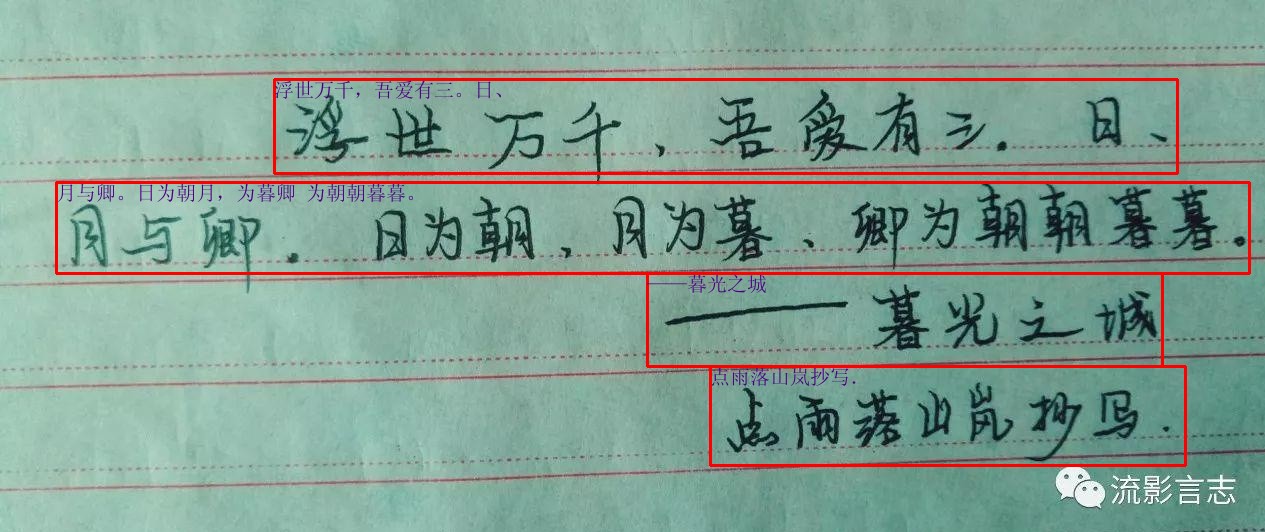 浮世万千，吾爱有三。日、
浮世万千，吾爱有三. 日、
月与卿。日为朝月，为暮卿 为朝朝暮暮。
月与卿. 日为朝、月为暮、卿为朝朝暮暮。
——暮光之城
——暮光之城
点雨落山岚抄写.
点雨落山岚抄写.
流影言志